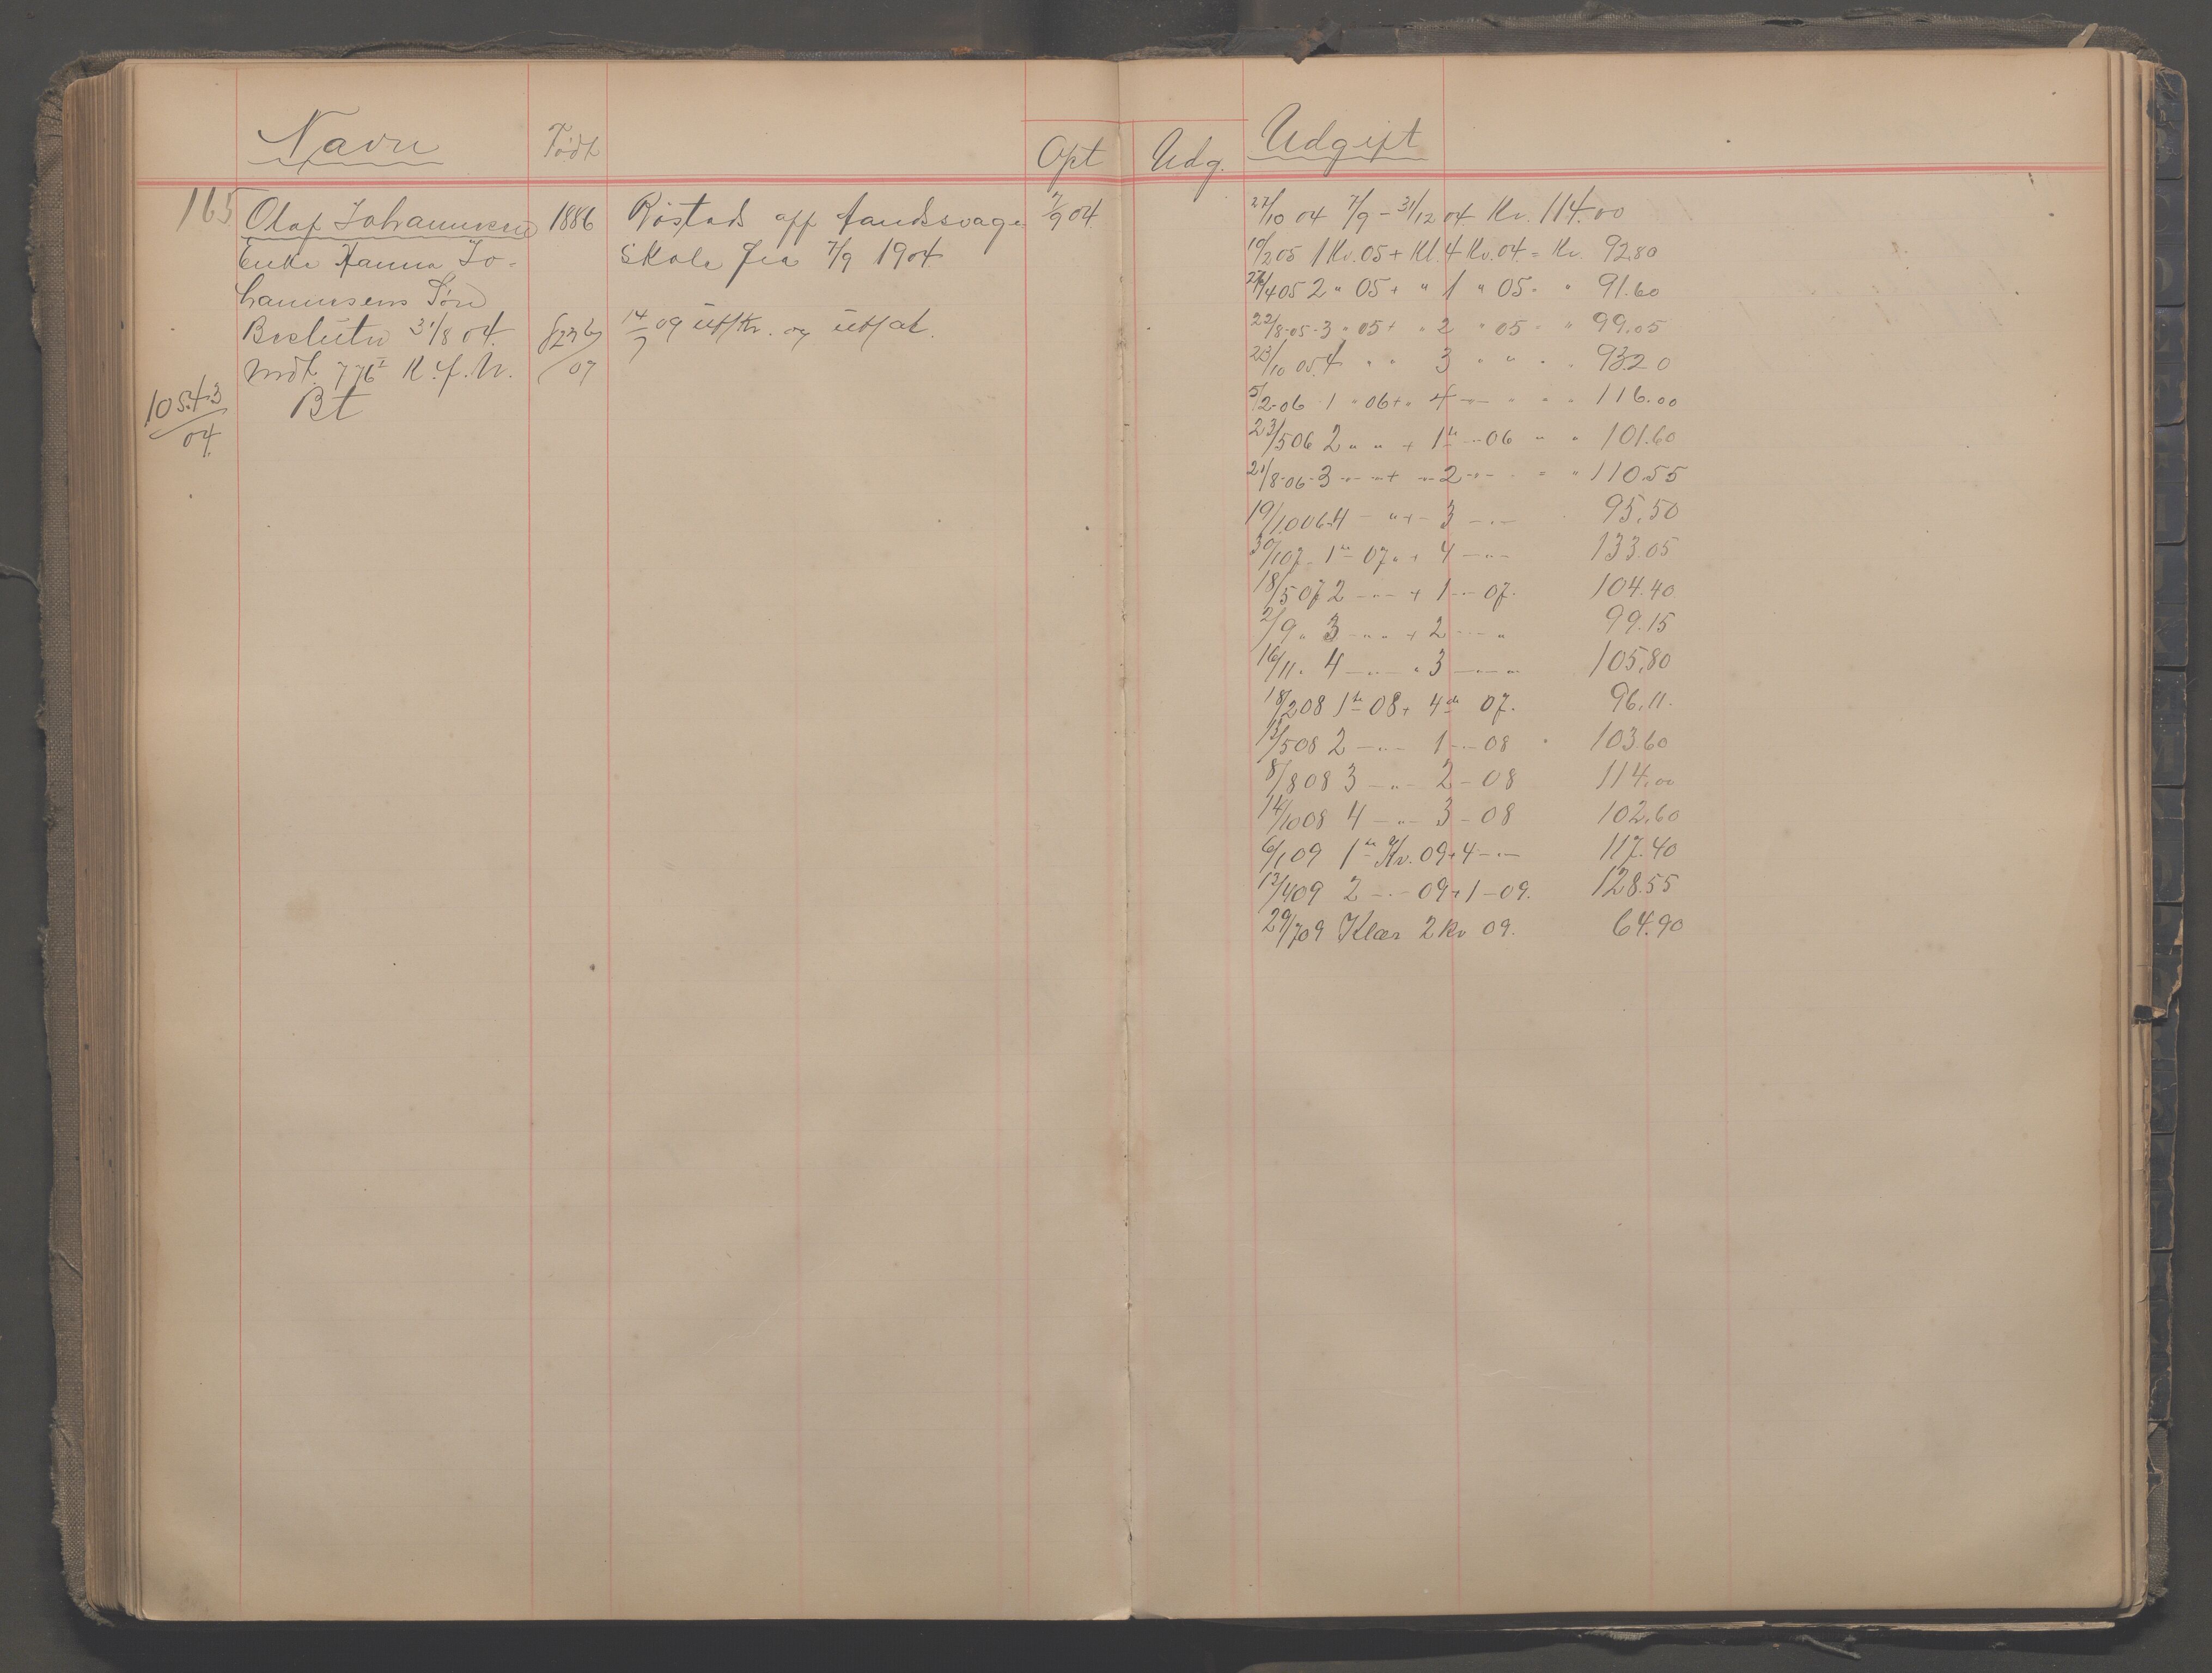 Navn Født Opt Udg. Udgift
165 Olaf Johannesen 1886 Røstad opf aandssvage 7/9 04
Enke Hanna Jo-
hannesens Søn
Skole fra 7/9 1904
Beslutn 31/8 04.
14/7 09 utskr. og
Mdt. 776 I K.f.N.
07
Bt
10543/04.
27/10 04 7/9 - 31/12 04 Kr. 114.00
19/2 05 1 Kv. 05 + Kl. 4 Kv. 04 = Kr. 92.80
4 05 2 " 05 + " 1 " 05 " " 91.60
22/8-05-3 " 05 + " 2 " 05 " " 99.05
23/10 05.4 " " 3 " " " " 93.20
5/2-06 1 " 06 + " 4 -"- " " " 116.00
23/5 06 2 " " + 1te -"- 06 " " 101.60
21/8-06-3 -"- -"- + -"- 2 -"- " " " 110.55
19/10 06 4 - "+- 3 -"- 95.50
30/1 07. 1te 07 " + 4 -"- 133.05
18/5 07 2 -"- + 1 -"- 07. 104.40
2/9 " 3 -"- " + 2 -"- " 99.15
16/11 " 4 -"- " 3 -"- " 105.80
18/2 08 1te 08 + 4de 07. 96.11.
13/5 08 2 -"- 1 -"- 08 " 103.60
8/8 08 3 -"- 2 - 08 114.00
14/10 08 4 -"- 3 - 08 102.60
6/1 09 1te Kv. 09 + 4 -"- 117.40
13/4 09 2 -"- 09 + 1 - 09. 128.55
29/7 09 Klær 2 Kv 09. 64.90